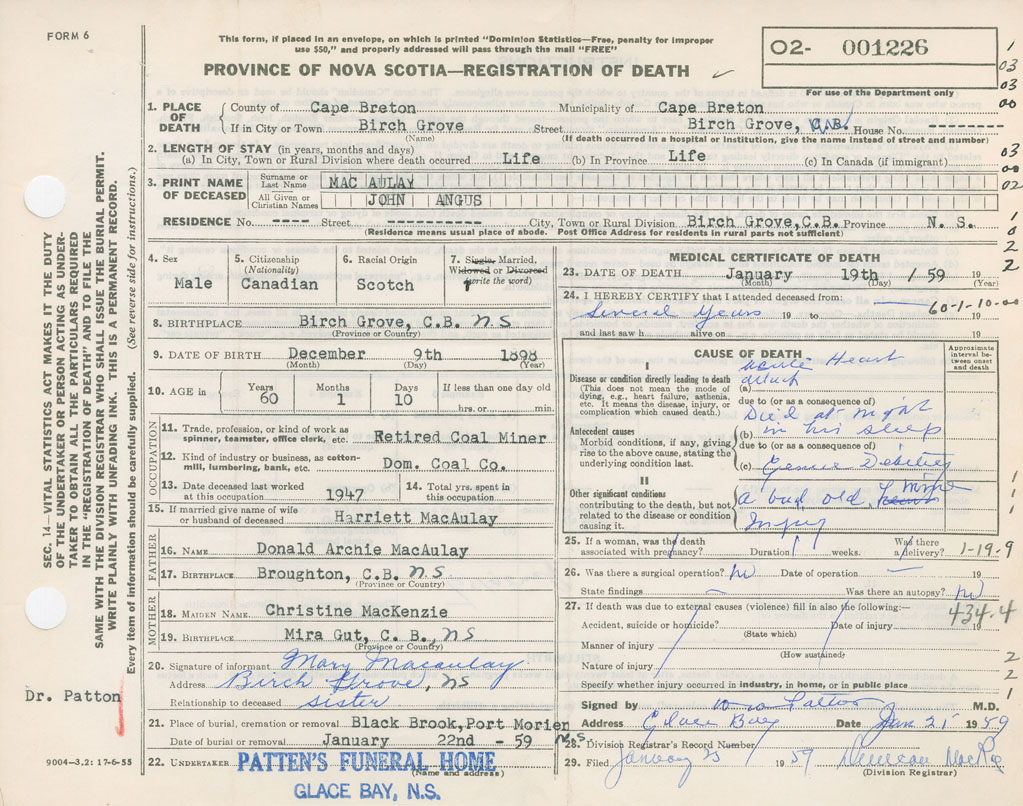 FORM 6
This form, if placed in an envelope, on which is printed "Dominion Statistics—Free, penalty for improper
use $50," and properly addressed will pass through the mail "FREE"
PROVINCE OF NOVA SCOTIA—REGISTRATION OF DEATH
O2- 001226
For use of the Department only
1
03
03
00
03
00
02
1
0
2
2
SEC. 14—VITAL STATISTICS ACT MAKES IT THE DUTY
OF THE UNDERTAKER OR PERSON ACTING AS UNDER-
TAKER TO OBTAIN ALL THE PARTICULARS REQUIRED
IN THE "REGISTRATION OF DEATH" AND TO FILE THE
SAME WITH THE DIVISION REGISTRAR WHO SHALL ISSUE THE BURIAL PERMIT.
WRITE PLAINLY WITH UNFADING INK. THIS IS A PERMANENT RECORD.
Every item of information should be carefully supplied. (See reverse side for instructions.)
1. PLACE OF DEATH County of Cape Breton Municipality of Cape Breton
If in City or Town Birch Grove Street Birch Grove, C.B. House No. --------
(Name) (If death occurred in a hospital or institution, give the name instead of street and number)
2. LENGTH OF STAY (in years, months and days)
(a) In City, Town or Rural Division where death occurred Life (b) In Province Life (c) In Canada (if immigrant)
3. PRINT NAME OF DECEASED Surname or Last Name MAC AULAY
All Given or Christian Names JOHN ANGUS
RESIDENCE No. ---- Street ----------- City, Town or Rural Division Birch Grove,C.B. Province N. S.
(Residence means usual place of abode. Post Office Address for residents in rural parts not sufficient)
4. Sex
Male
5. Citizenship
(Nationality)
Canadian
6. Racial Origin
Scotch
7. Single, Married,
Widowed or Divorced
(write the word)
8. BIRTHPLACE Birch Grove, C.B. N.S
(Province or Country)
9. DATE OF BIRTH December 9th 1898
(Month) (Day) (Year)
10. AGE in Years 60 Months 1 Days 10 If less than one day old
hrs. or min.
OCCUPATION
11. Trade, profession, or kind of work as
spinner, teamster, office clerk, etc. Retired Coal Miner
12. Kind of industry or business, as cotton-
mill, lumbering, bank, etc. Dom. Coal Co.
13. Date deceased last worked
at this occupation 1947
14. Total yrs. spent in
this occupation
15. If married give name of wife
or husband of deceased Harriett MacAulay
FATHER
16. NAME Donald Archie MacAulay
17. BIRTHPLACE Broughton, C.B. N.S
(Province or Country)
MOTHER
18. MAIDEN NAME Christine MacKenzie
19. BIRTHPLACE Mira Gut, C. B., NS
(Province or Country)
20. Signature of informant Mary Macaulay
Address Birch Grove, NS
Relationship to deceased sister
21. Place of burial, cremation or removal Black Brook,Port Morien N.S
Date of burial or removal January 22nd - 59
22. UNDERTAKER PATTEN'S FUNERAL HOME
(Name and address)
GLACE BAY, N.S.
Dr. Patton
9004—3.2: 17-6-55
MEDICAL CERTIFICATE OF DEATH
23. DATE OF DEATH January 19th / 59 19
(Month) (Day) (Year)
24. I HEREBY CERTIFY that I attended deceased from: 60-1-10-00
Several Years 19 to 19
and last saw h alive on 19
CAUSE OF DEATH
Approximate interval between onset and death
I
Disease or condition directly leading to death
(This does not mean the mode of
dying, e.g., heart failure, asthenia,
etc. It means the disease, injury, or
complication which caused death.)
acute Heart
(a) attack
due to (or as a consequence of)
Died at night
Antecedent causes
Morbid conditions, if any, giving
rise to the above cause, stating the
underlying condition last.
(b) in his sleep
due to (or as a consequence of)
(c) Debility
II
Other significant conditions
contributing to the death, but not
related to the disease or condition
causing it.
a bad old Mine
Injury
1
1
1
25. If a woman, was the death
associated with pregnancy? Duration weeks. Was there
a delivery? 1-19-9
26. Was there a surgical operation? no Date of operation — 19
State findings — Was there an autopsy? no
27. If death was due to external causes (violence) fill in also the following:—
434-4
Accident, suicide or homicide? Date of injury 19
(State which)
Manner of injury
(How sustained)
Nature of injury
Specify whether injury occurred in industry, in home, or in public place
2
2
1
Signed by Patton M.D.
Address Glace Bay Date Jan 21 1959
28. Division Registrar's Record Number
29. Filed January 23 1959 Duncan MacRae
(Division Registrar)